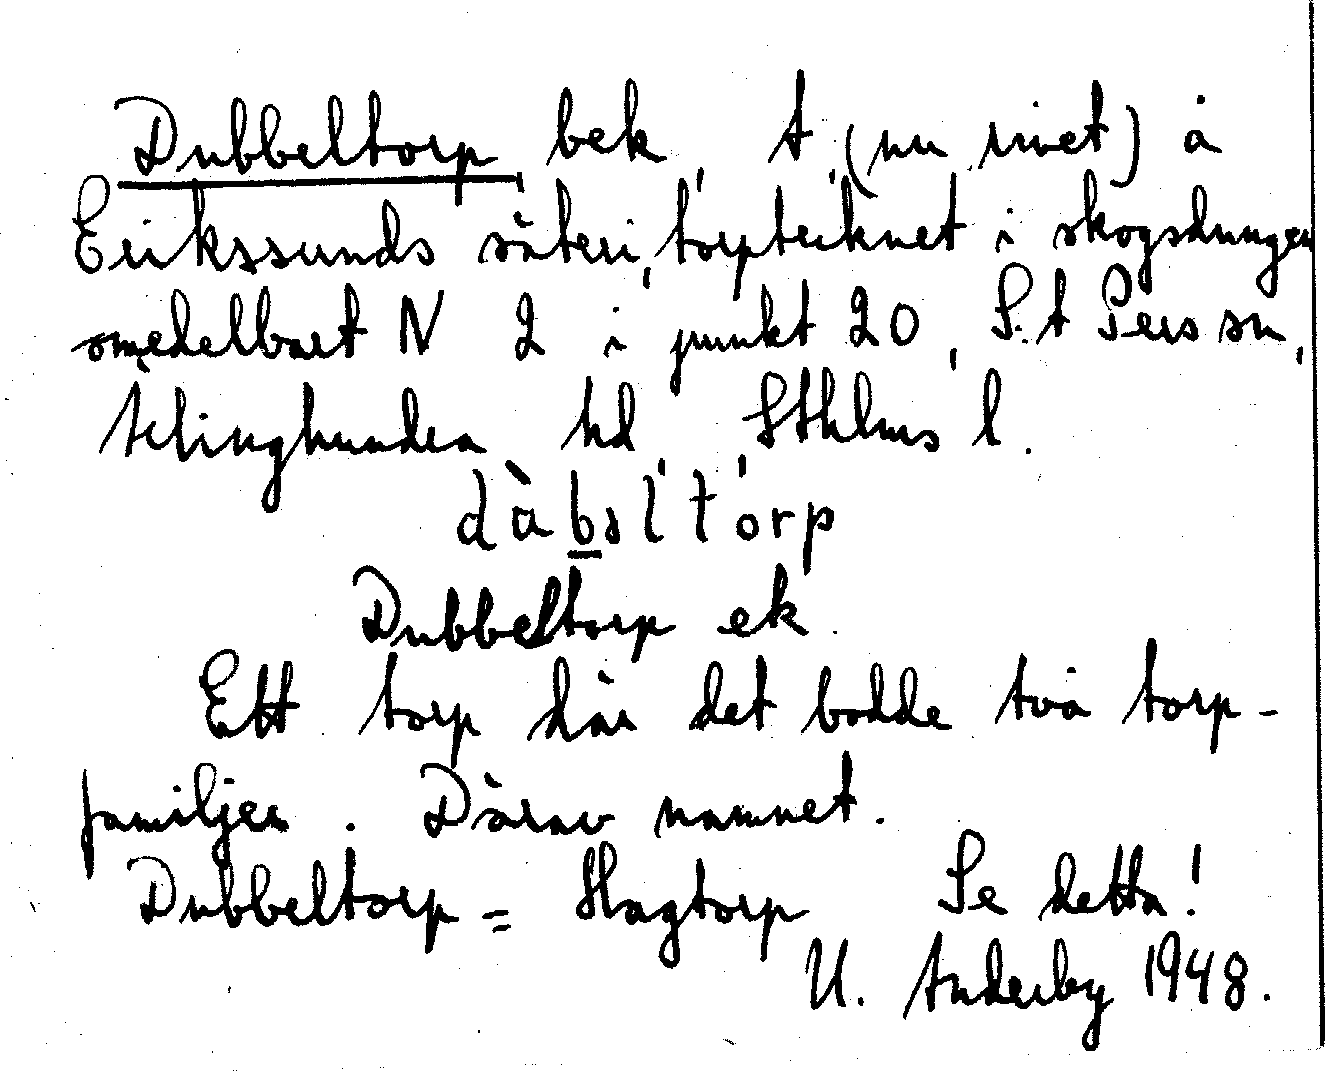 Dubbeltorp bek, t, (nu rivet) å
Erikssunds säteri, torptecknet i skogsdungen
omedelbart N 2 i punkt 20, S:t Pers sn,
Ärlinghundra hd, Sthlms l.
dàbəl't'orp
Dubbeltorp ek.
Ett torp där det bodde två torp-
familjer. Därav namnet.
Dubbeltorp = Hagtorp Se detta!
U. Anderby 1948.